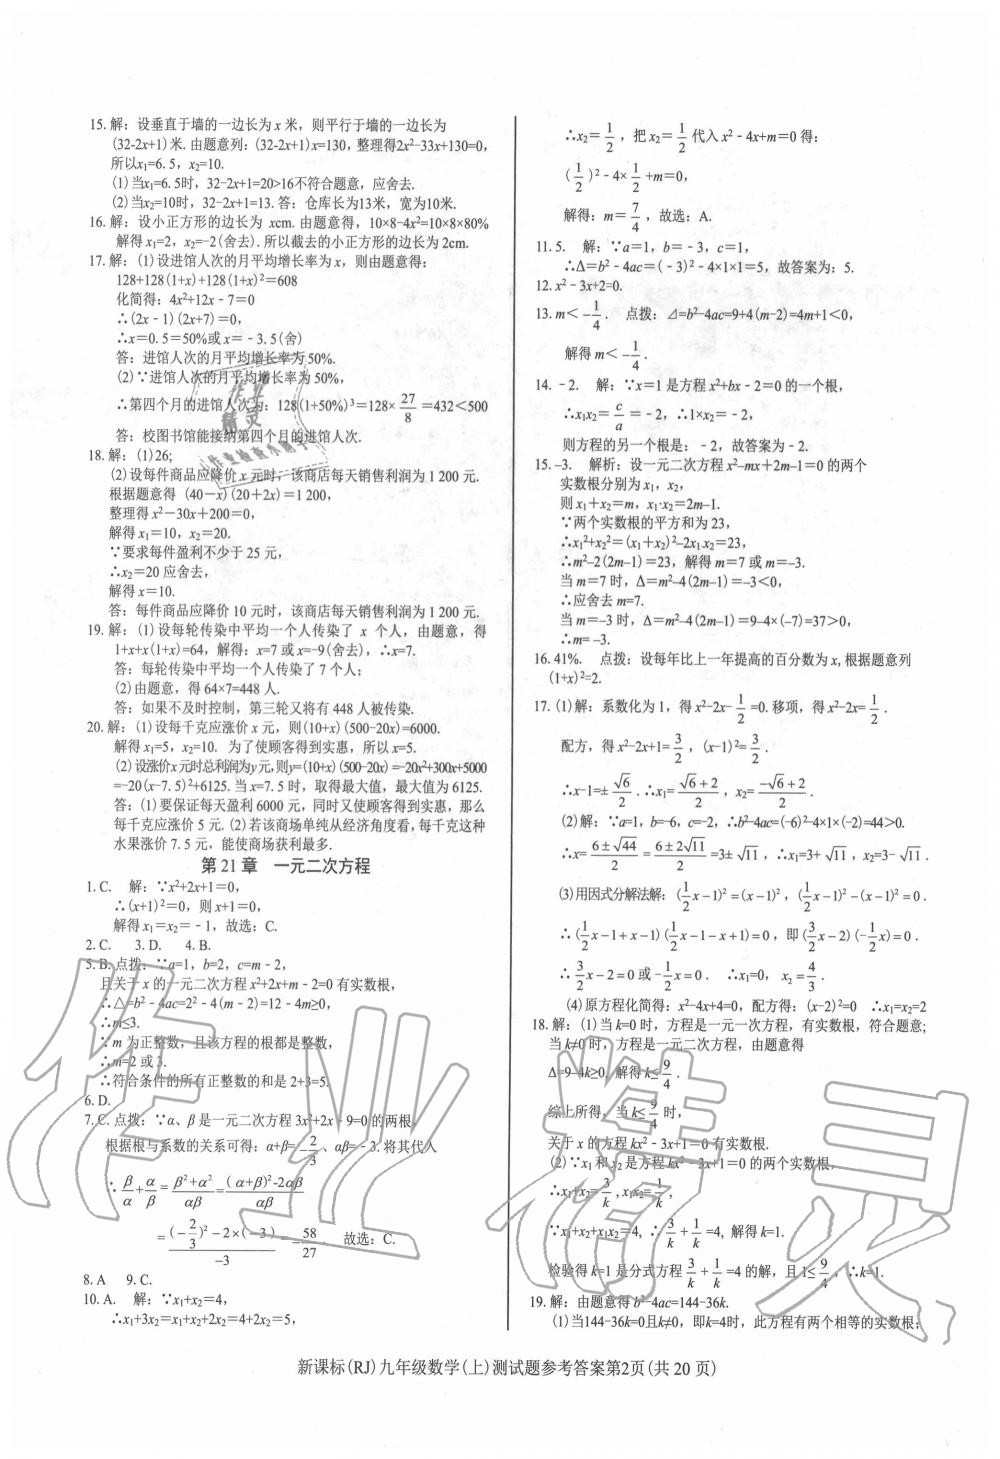 15. 解：设垂直于墙的一边长为 x 米，则平行于墙的一边长为
(32-2x+1)米. 由题意列：(32-2x+1)x=130, 整理得2x²-33x+130=0,
所以x₁=6.5, x₂=10.
(1)当x₁=6.5时，32-2x+1=20>16不符合题意，应舍去.
(2)当x₂=10时，32-2x+1=13. 答：仓库长为13米，宽为10米.
16. 解：设小正方形的边长为 xcm. 由题意得，10×8-4x²=10×8×80%
解得 x₁=2，x₂=-2(舍去). 所以截去的小正方形的边长为 2cm.
17. 解：(1)设进馆人次的月平均增长率为 x，则由题意得：
128+128(1+x)+128(1+x)²=608
化简得：4x²+12x-7=0
∴(2x-1)(2x+7)=0,
∴x=0.5=50%或 x=-3.5(舍)
答：进馆人次的月平均增长率为 50%.
(2)∵进馆人次的月平均增长率为 50%,
∴第四个月的进馆人次为：128(1+50%)³=128×27/8=432<500
答：校图书馆能接纳第四个月的进馆人次.
18. 解：(1)26;
(2)设每件商品应降价 x 元时，该商店每天销售利润为 1 200 元.
根据题意得 (40-x)(20+2x)=1 200,
整理得 x²-30x+200=0,
解得 x₁=10，x₂=20.
∵要求每件盈利不少于 25 元，
∴x₂=20 应舍去，
解得 x=10.
答：每件商品应降价 10 元时，该商店每天销售利润为 1 200 元.
19. 解：(1)设每轮传染中平均一个人传染了 x 个人，由题意，得
1+x+x(1+x)=64，解得：x=7 或 x=-9(舍去)，∴x=7.
答：每轮传染中平均一个人传染了 7 个人；
(2)由题意，得 64×7=448 人.
答：如果不及时控制，第三轮又将有 448 人被传染.
20. 解：(1)设每千克应涨价 x 元，则(10+x)(500-20x)=6000.
解得 x₁=5, x₂=10. 为了使顾客得到实惠，所以 x=5.
(2)设涨价 x 元时总利润为 y 元,则y=(10+x)(500-20x)=-20x²+300x+5000
=-20(x-7.5)²+6125. 当 x=7.5 时，取得最大值，最大值为 6125.
答：(1)要保证每天盈利 6000 元，同时又使顾客得到实惠，那么
每千克应涨价 5 元. (2)若该商场单纯从经济角度看，每千克这种
水果涨价 7.5 元，能使商场获利最多.
第 21 章 一元二次方程
1. C. 解：∵x²+2x+1=0,
∴(x+1)²=0，则 x+1=0,
解得 x₁=x₂=-1，故选：C.
2. C. 3. D. 4. B.
5. B. 点拨：∵a=1，b=2，c=m-2,
且关于 x 的一元二次方程 x²+2x+m-2=0 有实数根,
∴△=b²-4ac=2²-4(m-2)=12-4m≥0,
∴m≤3.
∵m 为正整数，且该方程的根都是整数,
∴m=2 或 3.
∴符合条件的所有正整数的和是 2+3=5.
6. D.
7. C. 点拨：∵α、β 是一元二次方程 3x²+2x-9=0 的两根,
根据根与系数的关系可得：α+β=-2/3、αβ=-3. 将其代入
∵β/α+α/β=(β²+α²)/αβ=((α+β)²-2αβ)/αβ
=((-2/3)²-2×(-3))/-3=-58/27 故选：C.
8. A 9. C.
10. A. 解：∵x₁+x₂=4,
∴x₁+3x₂=x₁+x₂+2x₂=4+2x₂=5,
∴x₂=1/2，把 x₂=1/2 代入 x²-4x+m=0 得：
(1/2)²-4×1/2+m=0,
解得：m=7/4，故选：A.
11. 5. 解：∵a=1，b=-3，c=1,
∴Δ=b²-4ac=(-3)²-4×1×1=5，故答案为：5.
12. x²-3x+2=0.
13. m<-1/4. 点拨：Δ=b²-4ac=9+4(m-2)=4m+1<0,
解得 m<-1/4.
14. -2. 解：∵x=1 是方程 x²+bx-2=0 的一个根,
∴x₁x₂=c/a=-2, ∴1×x₂=-2,
则方程的另一个根是：-2，故答案为-2.
15. -3. 解析：设一元二次方程 x²-mx+2m-1=0 的两个
实数根分别为 x₁，x₂,
则 x₁+x₂=m，x₁·x₂=2m-1.
∵两个实数根的平方和为 23,
∴x₁²+x₂²=(x₁+x₂)²-2x₁x₂=23,
∴m²-2(2m-1)=23，解得 m=7 或 m=-3.
当 m=7 时，Δ=m²-4(2m-1)=-3<0,
∴应舍去 m=7.
当 m=-3 时，Δ=m²-4(2m-1)=9-4×(-7)=37>0,
∴m=-3.
16. 41%. 点拨：设每年比上一年提高的百分数为 x, 根据题意列
(1+x)²=2.
17. (1)解：系数化为 1，得 x²-2x-1/2=0. 移项，得 x²-2x=1/2.
配方，得 x²-2x+1=3/2，(x-1)²=3/2.
∴x-1=±√6/2. ∴x₁=(√6+2)/2，x₂=(-√6+2)/2.
(2)解：∵a=1, b=-6, c=-2, ∴b²-4ac=(-6)²-4×1×(-2)=44>0.
∴x=(6±√44)/2=(6±2√11)/2=3±√11，∴x₁=3+√11，x₂=3-√11.
(3)用因式分解法解：(1/2x-1)²=(x-1)²，(1/2x-1)²-(x-1)²=0.
∴(1/2x-1+x-1)(1/2x-1-x+1)=0，即(3/2x-2)(-1/2x)=0.
∴3/2x-2=0或-1/2x=0. ∴x₁=0，x₂=4/3.
(4)原方程化简得：x²-4x+4=0，配方得：(x-2)²=0 ∴x₁=x₂=2
18. 解：(1)当 k=0 时，方程是一元一次方程，有实数根，符合题意;
当 k≠0 时，方程是一元二次方程，由题意得
Δ=9-4k≥0, 解得 k≤9/4.
综上所得，当 k≤9/4 时，
关于 x 的方程 kx²-3x+1=0 有实数根.
(2)∵x₁ 和 x₂ 是方程 kx²-3x+1=0 的两个实数根，
∴x₁+x₂=3/k, x₁x₂=1/k,
∵x₁+x₂+x₁x₂=4, ∴3/k+1/k=4, 解得 k=1.
检验得 k=1 是分式方程 3/k+1/k=4 的解，且 1≤9/4，∴k=1.
19. 解：由题意得 b²-4ac=144-36k.
(1)当144-36k=0且k≠0，即k=4时，此方程有两个相等的实数根；
新课标(RJ)九年级数学(上)测试题参考答案第2页(共 20 页)
作业精灵